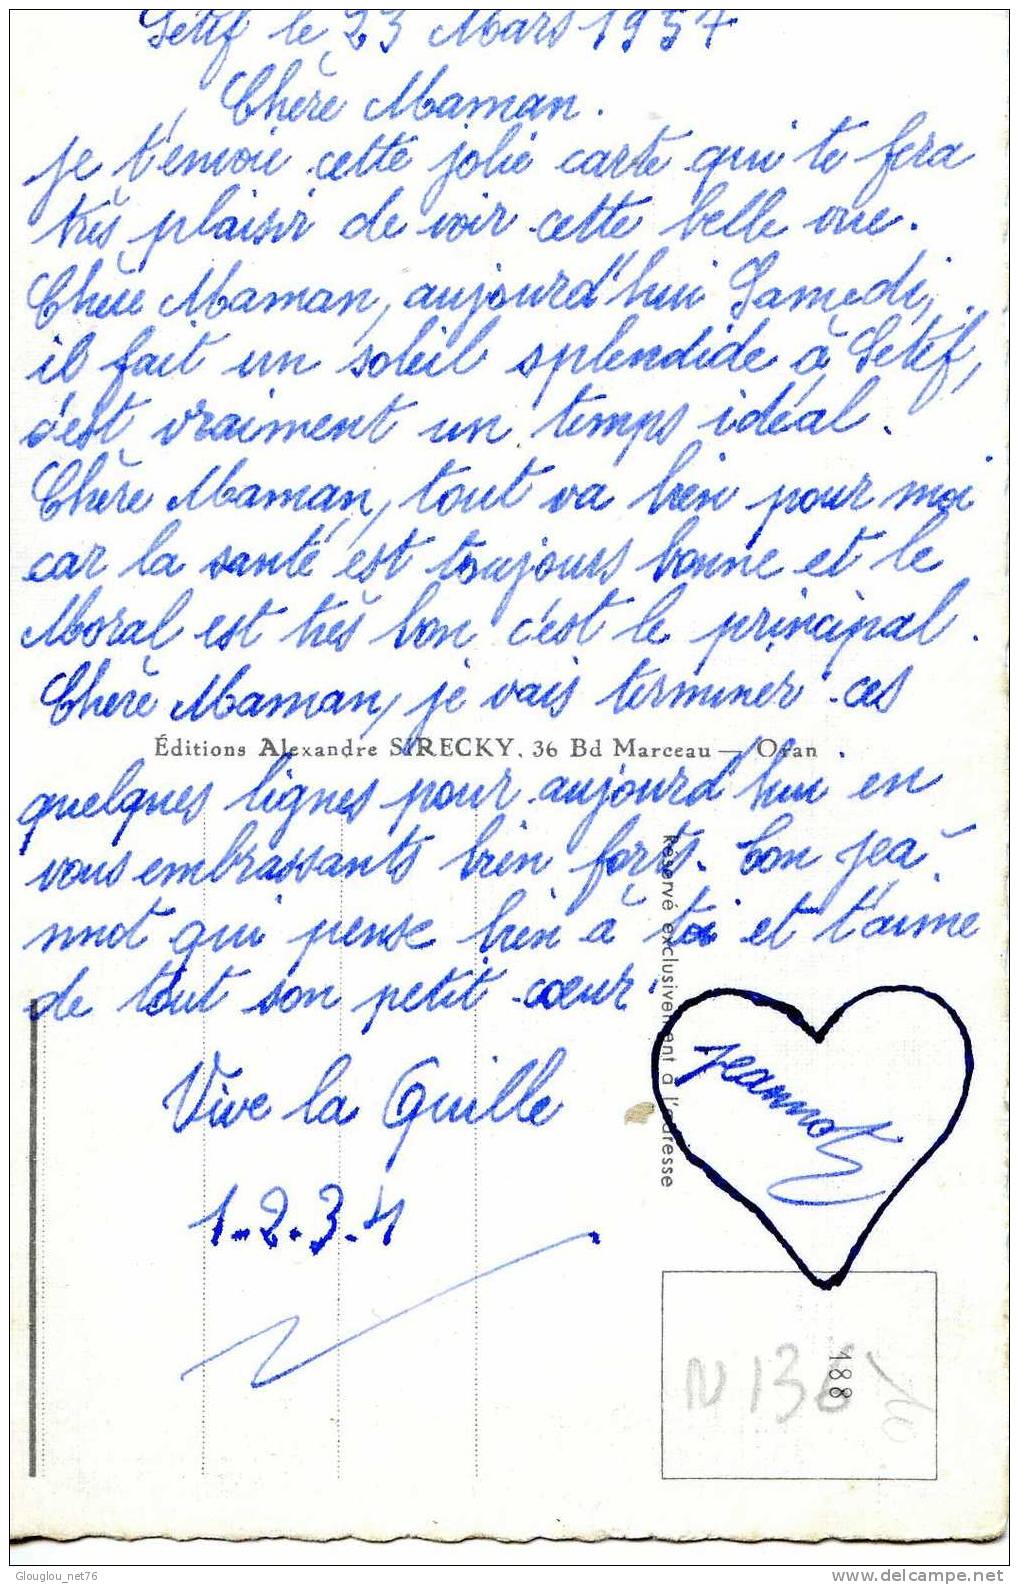 Sétif le 23 Mars 1957
Chère Maman.
je t'envoie cette jolie carte qui te fera
très plaisir de voir cette belle vue.
Chère Maman, aujourd'hui Samedi,
il fait un soleil splendide à Sétif,
c'est vraiment un temps idéal.
Chère Maman, tout va bien pour moi
car la santé est toujours bonne et le
Moral est très bon c'est le principal.
Chère Maman, je vais terminer ces
Éditions Alexandre SIRECKY, 36 Bd Marceau — Oran
quelques lignes pour aujourd'hui en
vous embrassants bien forts. Ton Jea
nnot qui pense bien à toi et t'aime
de tout son petit cœur.
Réservé exclusivement à l'adresse
Jeannot
Vive la Quille
1.2.3.4
188
N136
Glouglou_net76
delcampe.net